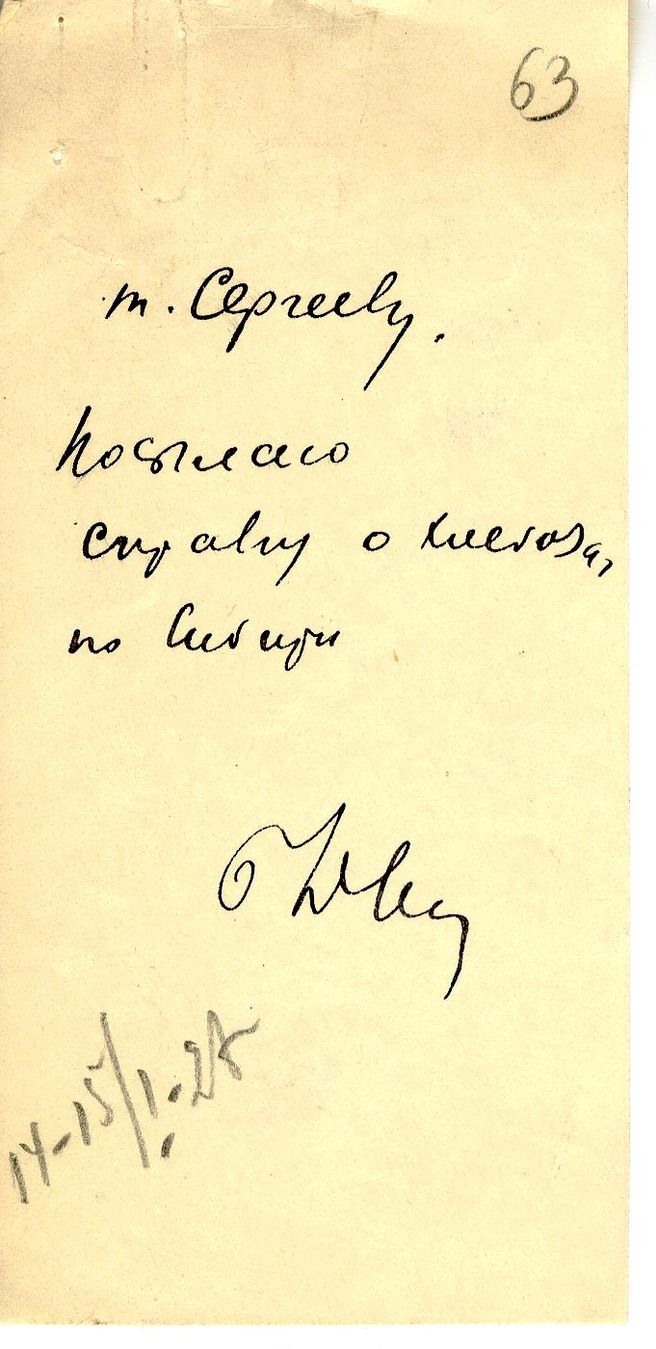 63
т. Сергееву.
Посылаю
справку о хлебоза,
по Сибири
14-15/I.-28